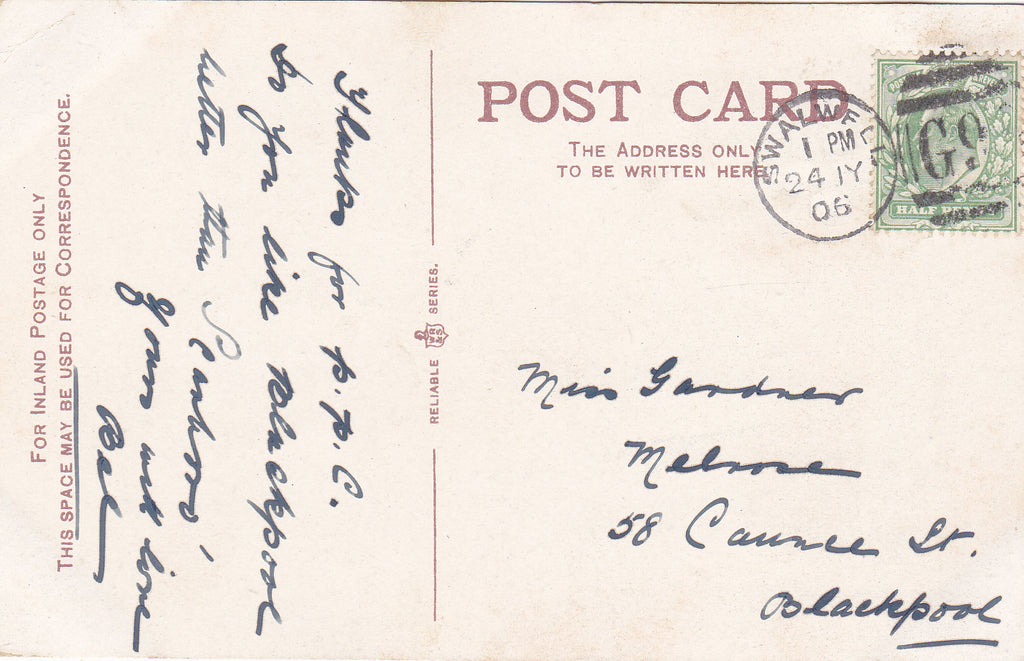 FOR INLAND POSTAGE ONLY
THIS SPACE MAY BE USED FOR CORRESPONDENCE.
Thanks for p.p.c.
Do you like Blackpool
better than S
Yours with love
Bel
RELIABLE WR&S SERIES.
POST CARD
THE ADDRESS ONLY
TO BE WRITTEN HERE
SWALWELL
1 PM
24 JY
06
G9
HALF PENNY
Miss Gardner
Melrose
58 Caunce St.
Blackpool